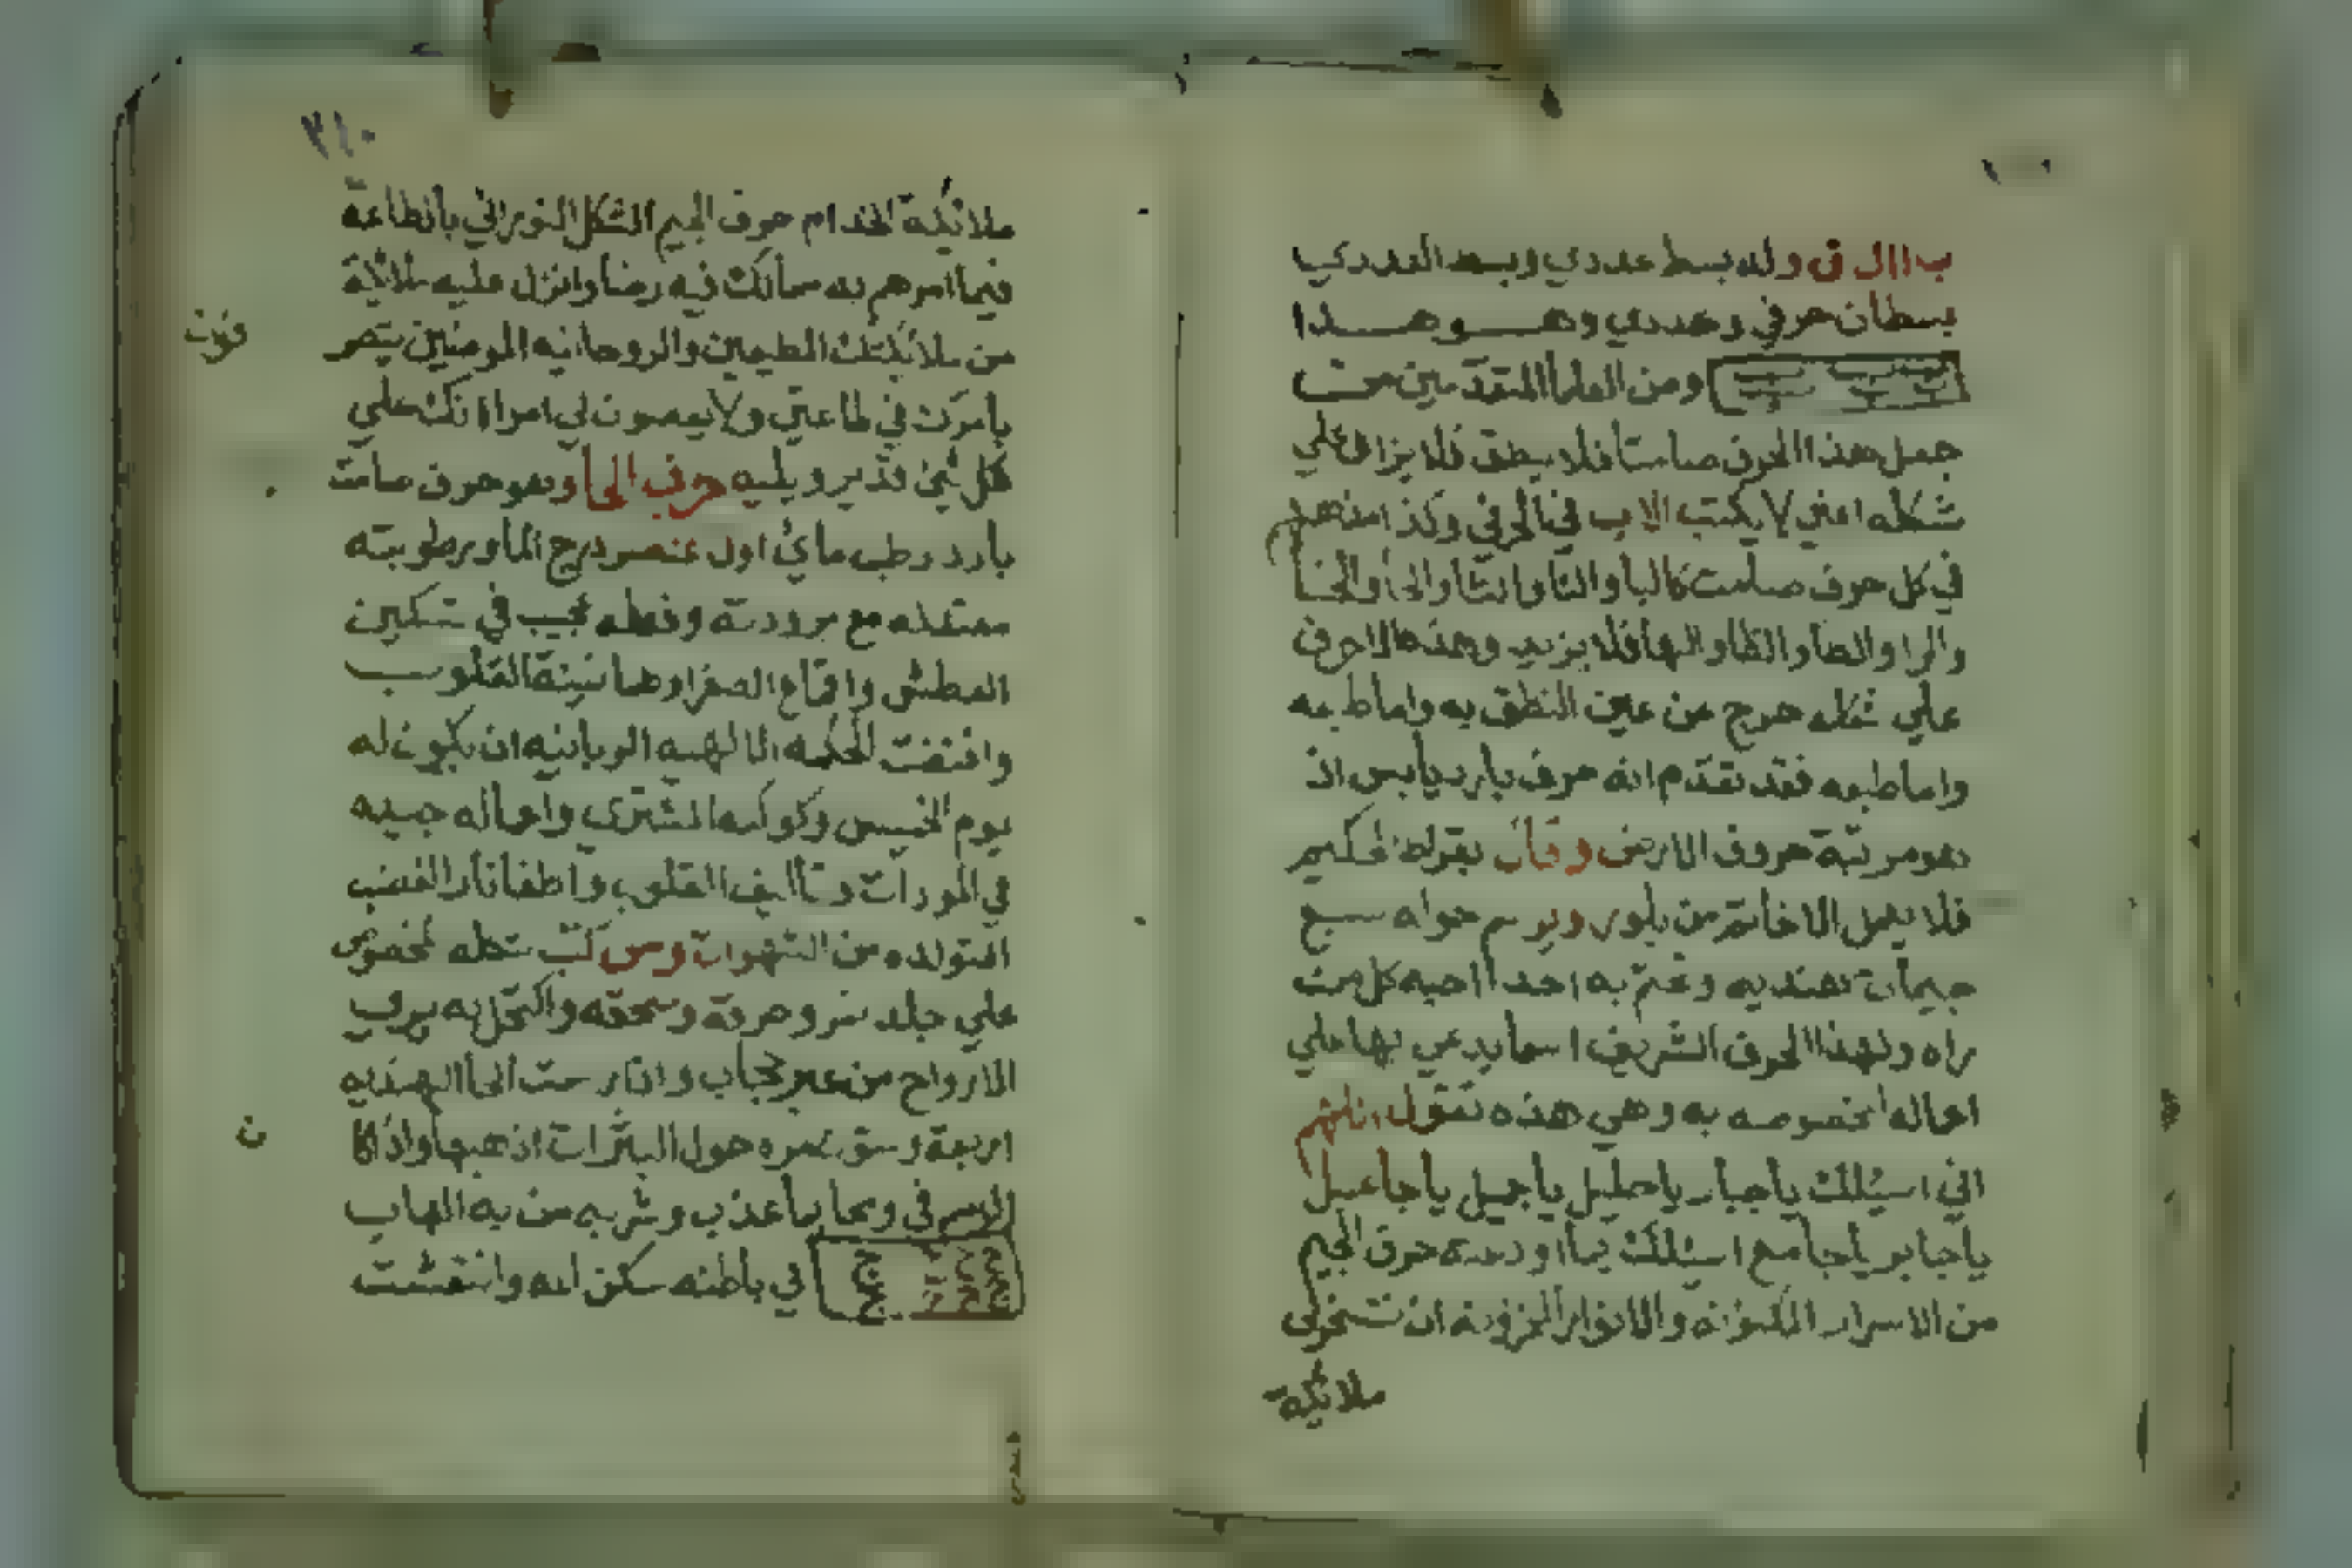 وله بسط عددي وبسط العدد كب
بسطان حرفي وعددي وهو هذا
ومن العلما المتقدمين من
جعل هذا الحرف صامتا فلا ينطق فلا يزاد علي
شكله اعني لا يكتب الا ب في الحرفي وكذا
في كل حرف صامت كالبا والتا والثا والحا والخا
والرا والطا والظا والها فلا يزيد وهذه الاحرف
علي شكله خرج من عين النطق به واما طبعه
واما طبعه فقد تقدم انه حرف بارد يابس اذ
هو مرتبة حروف الارض وقال بقراط الحكيم
فلا يعمل الا خاتم من بلور ويرسم حواه سبع
جيمات هنديه وختم به احدا احبه كل من
راه ولهذا الحرف الشريف اسما يدعي بها علي
اعماله المخصوصه به وهي هذه تقول اللهم
اني اسئلك يا جبار يا جليل يا جميل يا جاعل
يا جابر يا جامع اسئلك بما اودعته حرف الجيم
من الاسرار المكنونه والانوار المخزونة ان تسخر لي
ملائكة
٢١٠
ملائكة الخدام حرف الجيم الشكل النوراني بالطاعة
فيما امرهم به مما لك فيه رضا وانزل عليه ملائكة
من ملائكتك المطيعين والروحانيه المومنين
بامرك في طاعتي ولا يعصون لي امرا انك علي
كل شيئ قدير ويليه حرف الحا وهو حرف صامت
بارد رطب مائي اول عنصر درج الما ورطوبته
معتدله مع برودته وفعله عجيب في تسكين
العطش واقماع الصفرا
القلوب
واقتضت الحكمه الالهيه الربانيه ان يكون له
يوم الخميس وكوكبه المشتري واعماله جيده
في المودات وتأليف القلوب واطفا نار الغضب
المتولده من الشهوات ومن كتب شكله المخصوص
علي جلد نمر وحرقه وسحقه واكتحل به يري
الارواح من غير حجاب وان رسمت الحا الهنديه
اربعة
حول البثرات اذهبها واذا كا
الاسم في ومحا بما عذب وشربه من به الهاب
ح ح ح ح ح ح ح ح
في باطنه سكن
وانتعشت
ن